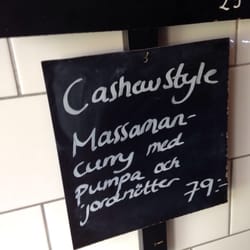 Cashewstyle
Massaman-
curry med
pumpa och
jordnötter 79:-